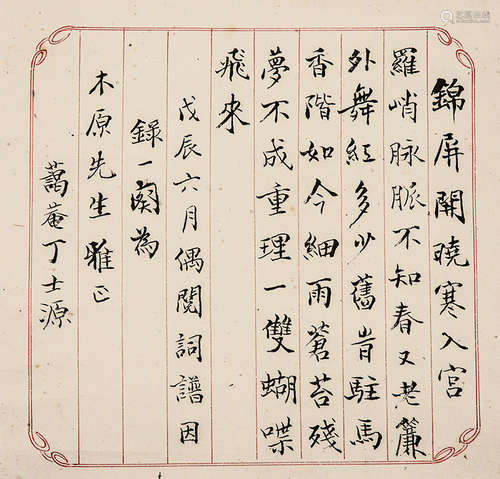 錦屏開曉寒入宮
羅峭脉脈不知春又老簾
外舞紅多少舊旹駐馬
香階如今細雨蒼苔殘
夢不成重理一雙蝴喋
飛來
戊辰六月偶閱詞譜因
錄一闋為
木原先生雅正
藹菴丁士源